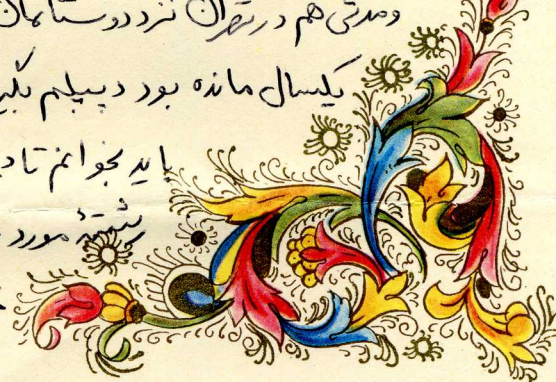 ومدتی هم در تهران نزد دوستانمان
یکسال مانده بود دیپلم بگیر
باید بخوانم تا د
رشتهٔ مورد